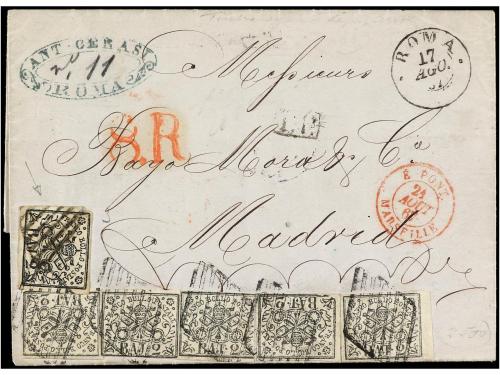 ANT. CERAS
Nº 11
ROMA
ROMA
17
AGO.
61
Messieurs
8R
P.D.
Bayo Mora & Cª
E. PONT.
24
AOUT
61
MARSEILLE
Madrid
BAJ 2
BAJ 2
BAJ 2
BAJ 2
BAJ 2
BAJ 2